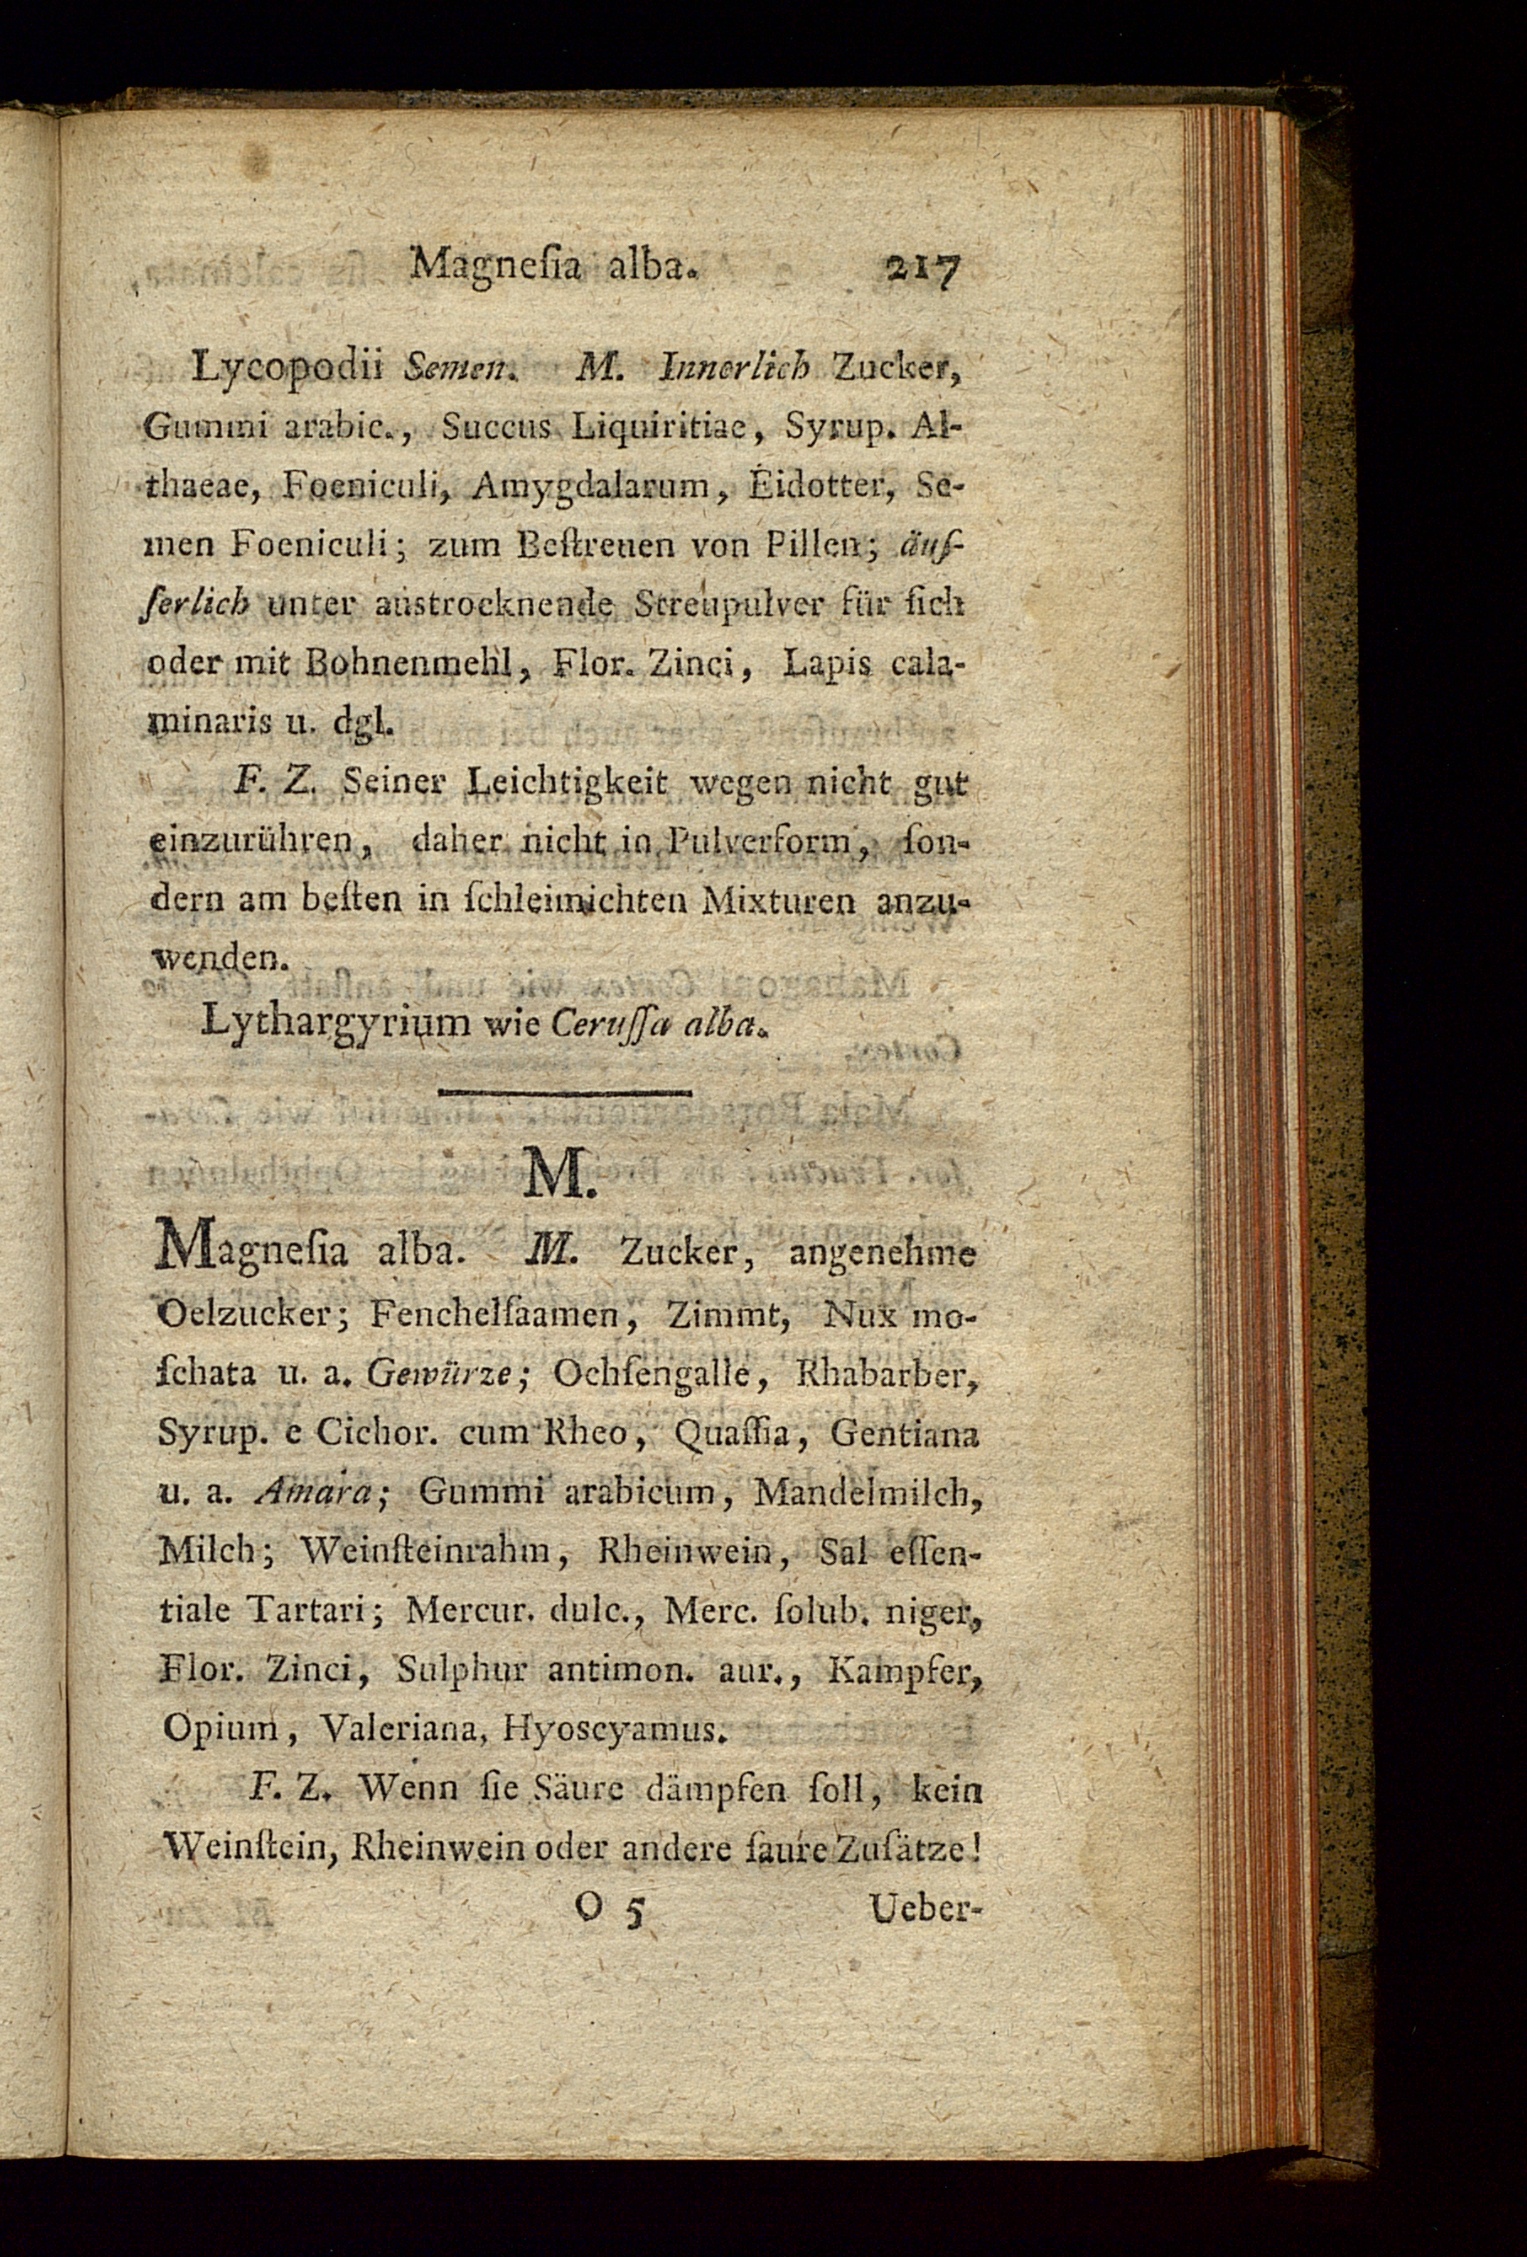 Magneſia alba. 217
Lycopodii Semen. M. Innerlich Zucker,
Gummi arabic., Succus Liquiritiae, Syrup. Al-
thaeae, Foeniculi, Amygdalarum, Eidotter, Se-
men Foeniculi; zum Beſtreuen von Pillen; äuſ-
ſerlich unter austrocknende Streupulver für ſich
oder mit Bohnenmehl, Flor. Zinci, Lapis cala-
minaris u. dgl.
F. Z. Seiner Leichtigkeit wegen nicht gut
einzurühren, daher nicht in Pulverform, ſon-
dern am beſten in ſchleimichten Mixturen anzu-
wenden.
Lythargyrium wie Ceruſſa alba.
M.
Magneſia alba. M. Zucker, angenehme
Oelzucker; Fenchelſaamen, Zimmt, Nux mo-
ſchata u. a. Gewürze; Ochſengalle, Rhabarber,
Syrup. e Cichor. cum Rheo, Quaſſia, Gentiana
u. a. Amara; Gummi arabicum, Mandelmilch,
Milch; Weinſteinrahm, Rheinwein, Sal eſſen-
tiale Tartari; Mercur. dulc., Merc. ſolub. niger,
Flor. Zinci, Sulphur antimon. aur., Kampfer,
Opium, Valeriana, Hyoscyamus.
F. Z. Wenn ſie Säure dämpfen ſoll, kein
Weinſtein, Rheinwein oder andere ſaure Zuſätze!
O 5 Ueber-